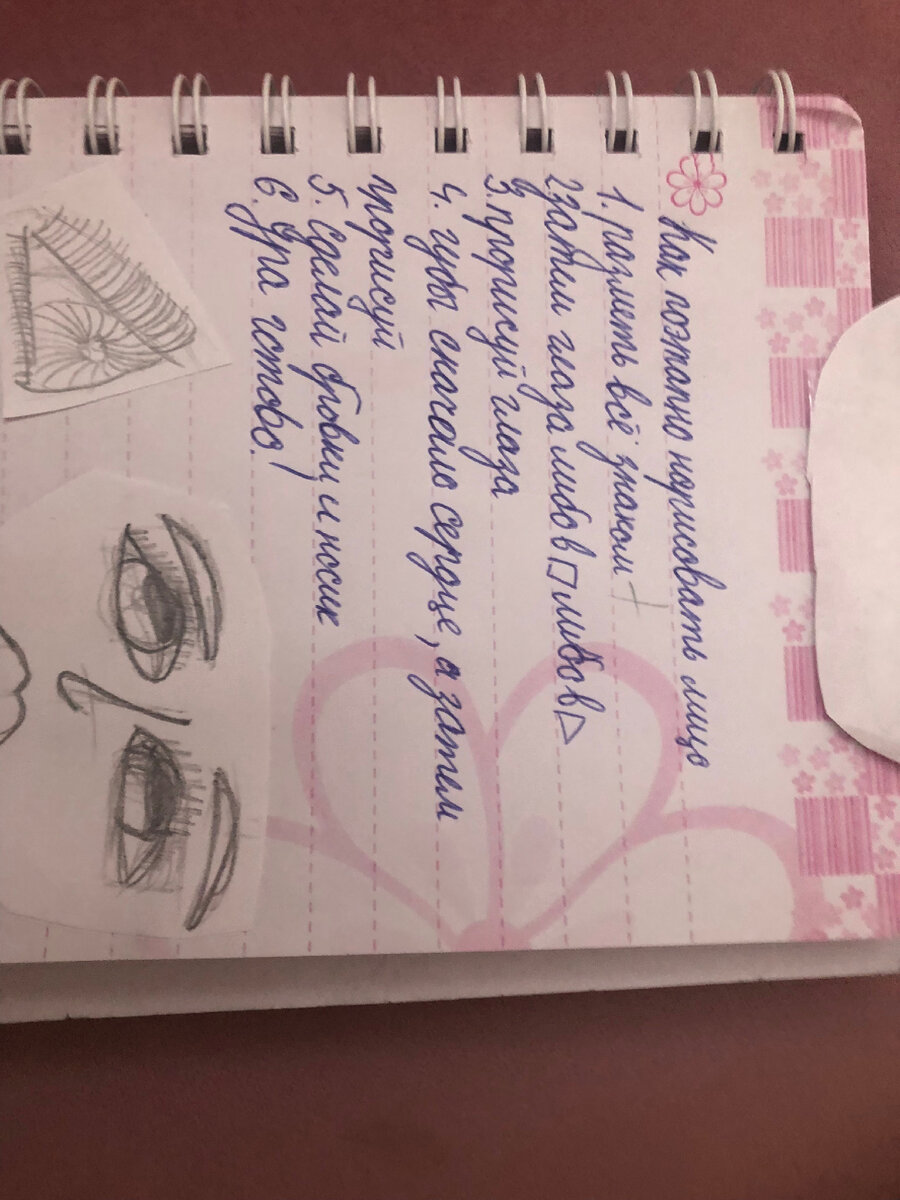 Как поэтапно нарисовать лицо
1. разметь всё знаком +
2 затем глаза либо в □ либо в △
3. прорисуй глаза
4. губы сначало сердце, а затем
прорисуй
5. сделай бровки и носик
6. Ура готово!